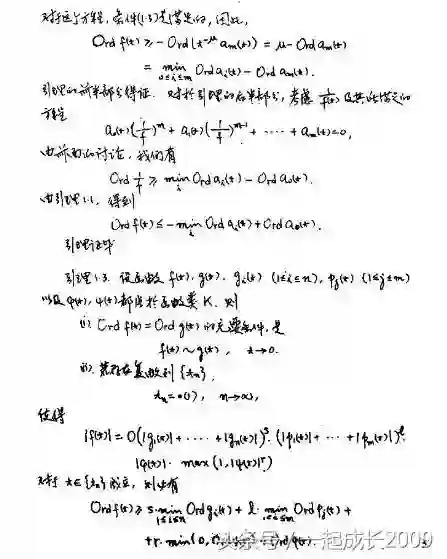 对于这个方程，条件(1.3)是满足的，因此，
Ord f(x) ≥ - Ord(x^{-μ} a_m(x)) = μ - Ord a_m(x)
= min_{0≤i≤m} Ord a_i(x) - Ord a_m(x).
引理的前半部分得证. 对于引理的后半部分，考虑 1/f(x) 及其所满足的
方程
a_0(x)(1/f)^m + a_1(x)(1/f)^{m-1} + ····· + a_m(x) = 0,
由前面的讨论，我们有
Ord 1/f ≥ min_i Ord a_i(x) - Ord a_0(x).
由引理1.1，得到
Ord f(x) ≤ - min_i Ord a_i(x) + Ord a_0(x).
引理证毕
引理1.3. 设函数 f(x), g(x), g_i(x) (1≤i≤n), p_j(x) (1≤j≤m)
以及 φ(x), ψ(x) 都属于函数类 K. 则
(i) Ord f(x) = Ord g(x) 的充要条件是
f(x) ~ g(x), x→0.
(ii) 若存在复数列 {x_n},
x_n = o(1), n→∞,
使得
|f(x)| = O(|g_1(x)| + ····· + |g_n(x)|)^s · (|p_1(x)| + ··· + |p_m(x)|)^l ·
|φ(x)| · max(1, |ψ(x)|^r)
对于 x∈{x_n} 成立，则必有
Ord f(x) ≥ s · min_{1≤i≤n} Ord g_i(x) + l · min_{1≤j≤m} Ord p_j(x) +
+ r · min(0, Ord
头条 @一起成长2009